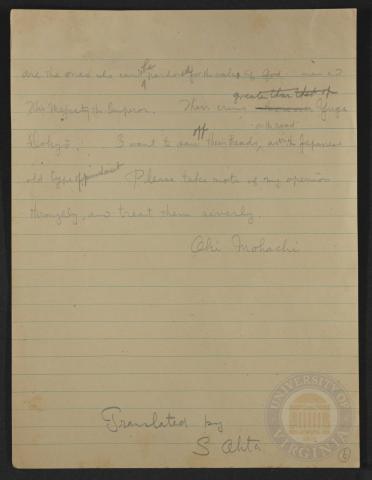 are the ones who can be pardoned for the sake of God - man and
His Majesty the Emperor. Their crime greater than that of Yuge
Dokyo. I want to saw off their heads, on the road with the Japanese
old type. Please take note of my opinion
throughly, and treat them severly.
Oki Mohachi
Translated by
S Ohta
UNIVERSITY OF
VIRGINIA
6